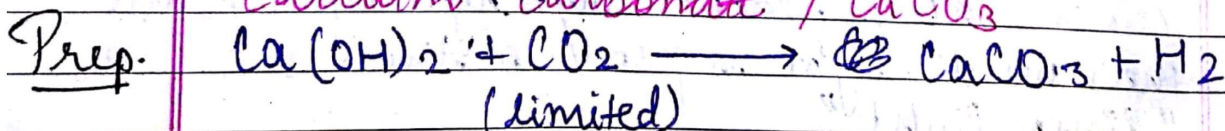 Calcium Carbonate / CaCO3
Prep. Ca(OH)2 + CO2 → CaCO3 + H2
(limited)